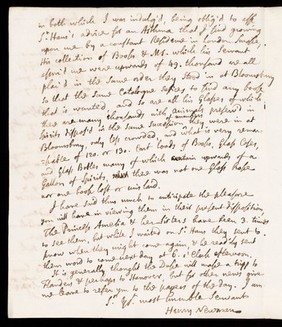 in both which I was indulg'd, being oblig'd to ask
Sr. Hans's advice for an Asthma that I find growing
upon me by a constant Residence in London Smoke,
His collection of Books & MS. which his Servant
assur'd me were upwards of 42. thousand are all
plac'd in the same order they stood in at Bloomsbury
so that the same Catalogue serves to find any book
that is wanted, and so are all his Glasses, of which
there are many thousand, with animals preserv'd in
Spirits dispos'd in the same Succession they were in at
Bloomsbury, only less crowded, and what is very remar
=kable of 120 or 130. Cart loads of Books, Glass Cases,
and Glass Bottles many of which contain upwards of a
Gallon of Spirits, there was not one Glass broke
nor one book lost or mislaid.
I have said thus much to anticipate the pleasure
you will have in viewing them in their present disposition
The Princess Amelia & her Sisters have been 3. times
to see them, but while I waited on Sr. Hans they sent to
know when they might come again & he readily sent
them word to come next day at 6. o'Clock afternoon.
It is generally thought the Duke will make a tripp to
Flanders & perhaps to Hanover but for other news give
me leave to refer you to the papers of the day. I am
Sr. Yr. most humble Servant
Henry Newman